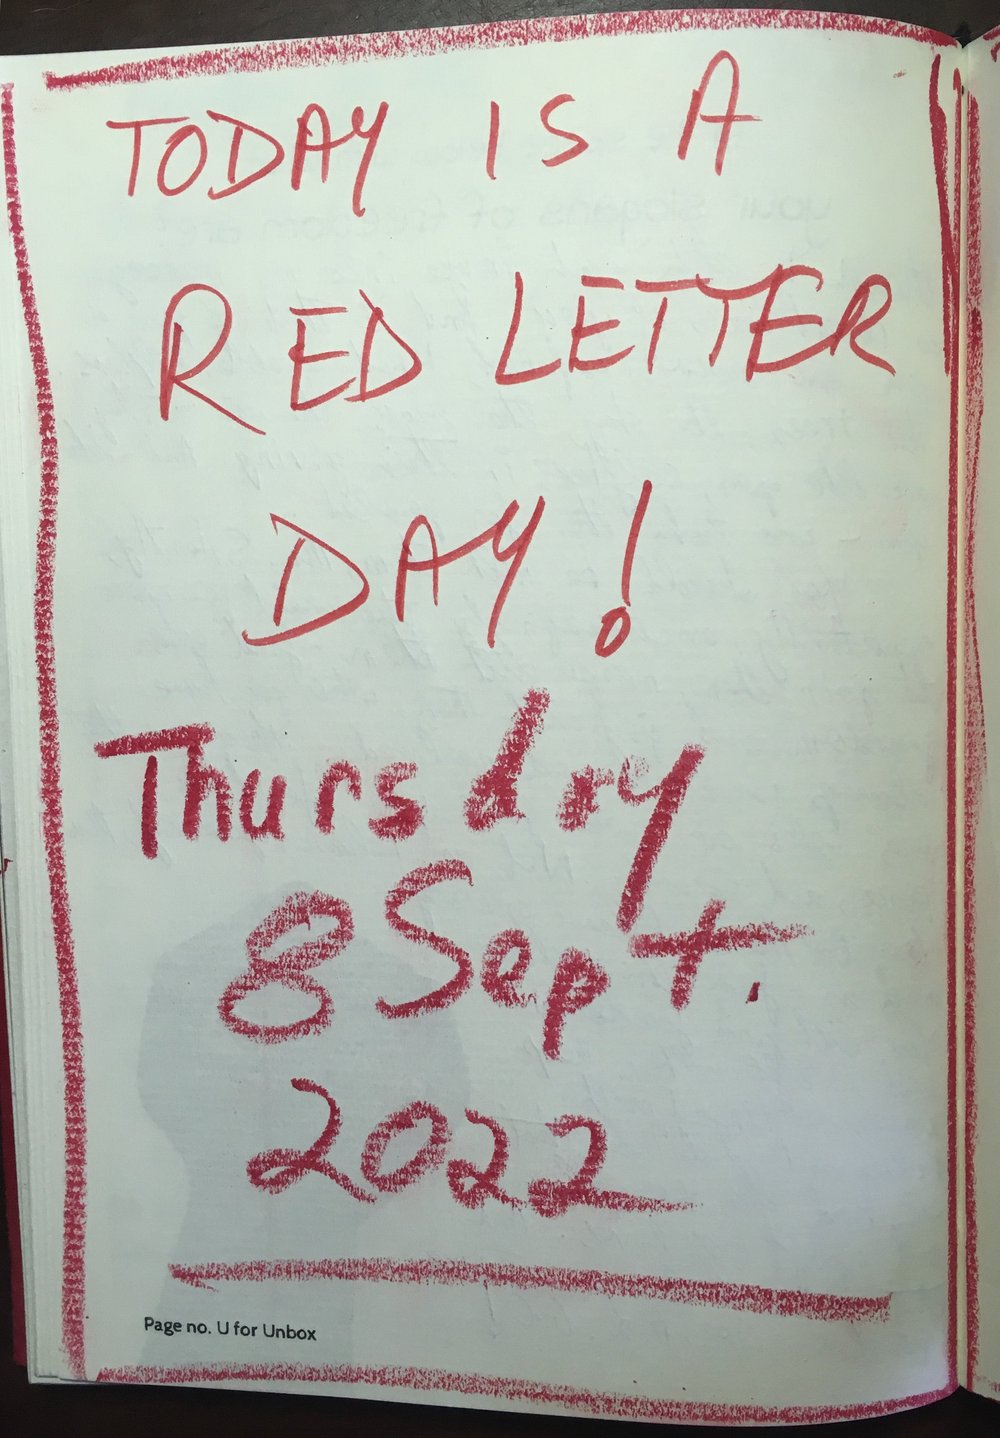 TODAY IS A
RED LETTER
DAY!
Thursday
8 Sept.
2022
Page no. U for Unbox